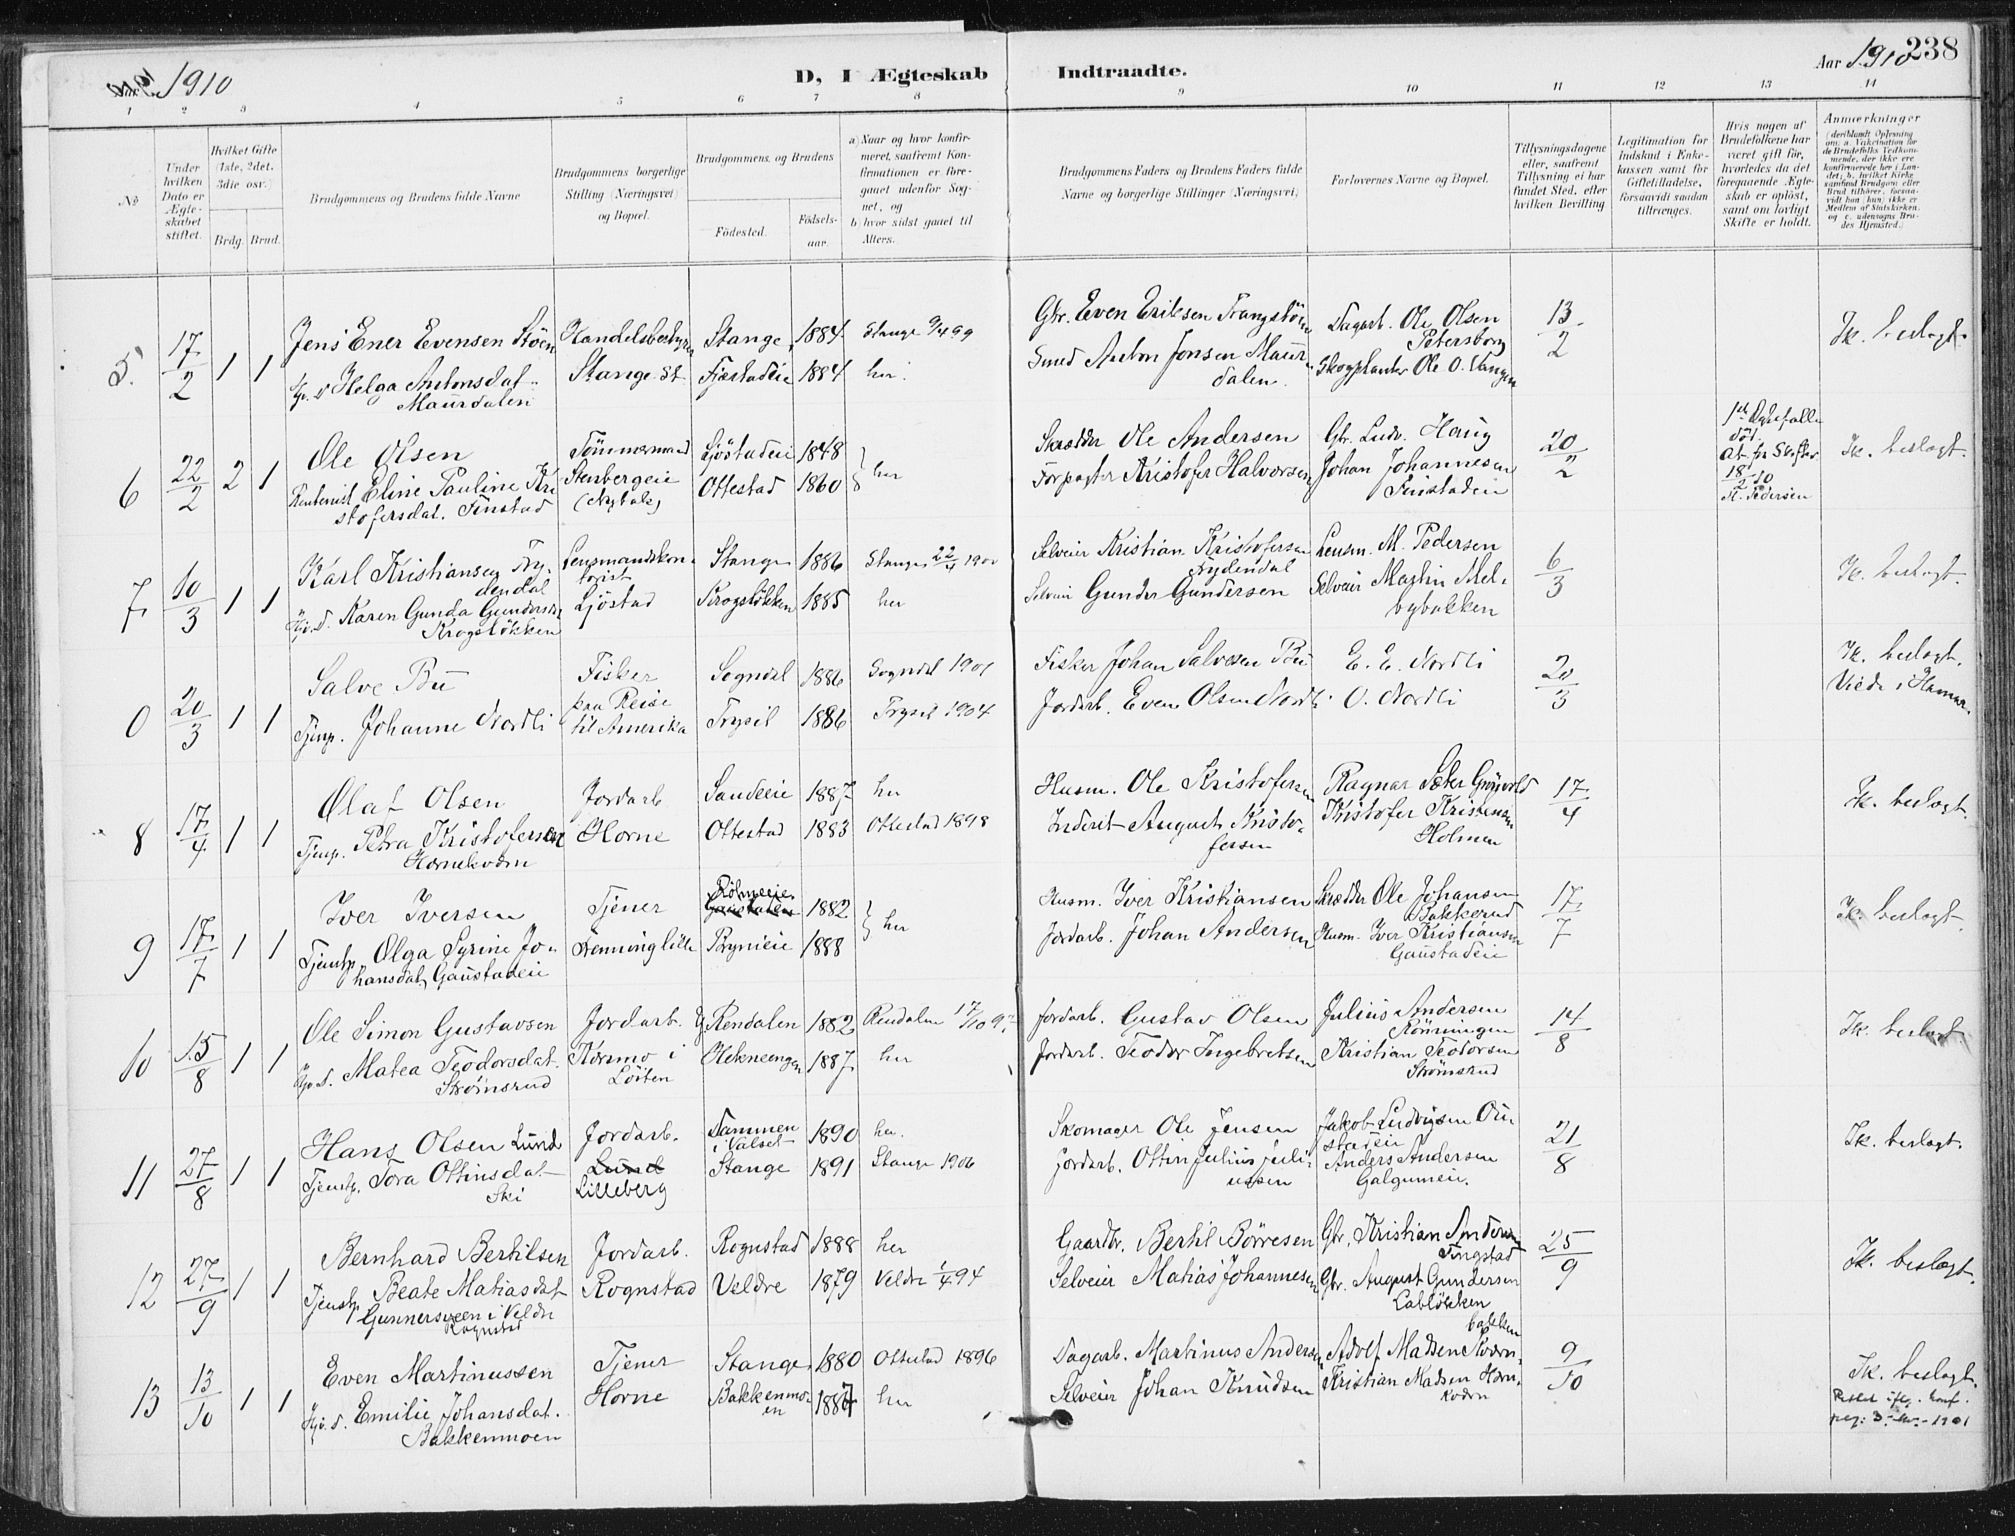 1910
D, I Ægteskab Indtraadte.
Aar 1910 238
1 2 3 4 5 6 7 8 9 10 11 12 13 14
No
Under hvilken Dato er Ægteskabet stiftet.
Hvilket Gifte (1ste, 2det, 3die osv.)
Brdg. Brud.
Brudgommens og Brudens fulde Navne
Brudgommens borgerlige Stilling (Næringsvei) og Bopæl.
Brudgommens og Brudens
Fødested.
Fødselsaar.
a) Naar og hvor konfirmeret, saafremt Konfirmationen er foregaaet udenfor Sognet, og
b) hvor sidst gaaet til Alters.
Brudgommens Faders og Brudens Faders fulde Navne og borgerlige Stillinger (Næringsvei)
Forlovernes Navne og Bopæl.
Tillysningsdagene eller, saafremt Tillysning ei har fundet Sted, efter hvilken Bevilling
Legitimation for Indskud i Enkekassen samt for Giftetilladelse, forsaavidt saadan tiltrænges.
Hvis nogen af Brudefolkene har været gift før, hvorledes da det foregaaende Ægteskab er opløst, samt om lovligt Skifte er holdt.
Anmærkninger
(deriblandt Oplysning om: a. Vakcination for de Brudefolks Vedkommende, der ikke ere konfirmerede her i Landet; b. hvilket Kirkesamfund Brudgom eller Brud tilhører, forsaavidt han (hun) ikke er Medlem af Statskirken, og c. udensogns Brudes Hjemsted.)
5. 17/2 1 1 Jens Ener Evensen Stöen Handelsbestyrer Stange 1884 Stange 9/4 99 Gbr. Even Eriksen Frangstöen Dagarb. Ole Olsen Petersborg 13/2 Ik. beslægt.
Hj. D Helga Antonsdat. Maurdalen Stange St. Fjæstadeie 1884 her. Smed Anton Jonsen Maurdalen. Skogplanter Ole O. Vangen
6 22/2 2 1 Ole Olsen Tömmermand Sjöstadeie 1848 her Skrædder Ole Andersen Gbr. Ludv. Haug 20/2 Ik. beslægt.
Rentenist Eline Pauline Kristofersdat. Finstad Stenbergeie Ottestad 1860 Forpagter Kristofer Halvorsen Johan Johannesen Finstadeie
At. for Skifte 18/2 10 M. Pedersen
7 10/3 1 1 Karl Kristiansen Frydendal Lensmandskontorist Stange 1886 Stange 22/4 1900 Selveier Kristian Kristofersen Frydendal Lensm. M. Pedersen 6/3 Ik. beslægt.
Hj. D. Karen Gunda Gundersen Krogsløkken Ljöstad Krogsløkken 1885 her Selveier Gunder Gundersen Selveier Martin Melbybakken
0 20/3 1 1 Salve Bu Fisker Sogndal 1886 Sogndal 1901 Fisker Johan Salvesen Bu E. E. Nordli 20/3 Ik. beslægt.
Tjenp. Johanne Nordli paa Reise til Amerika Trysil 1886 Trysil 1904 Jordarb. Even Olsen Nordli O. Nordli Viede i Hamar.
8 17/4 1 1 Olaf Olsen Jordarb Sandeeie 1887 her Husm. Ole Kristofersen Ragnar Sæter Grönvold 17/4 Ik. beslægt.
Tjenp. Petra Kristofersen Hornekværn Horne Ottestad 1883 Ottestad 1898 Inderst August Kristofersen Kristofer Kristensen Holmen
9 17/7 1 1 Iver Iversen Tjener Gaustadeie 1882 her Husm. Iver Kristiansen Skrædder Ole Johansen Bakkerud 17/7 Ik. beslægt.
Tjenstp. Olga Syrine Johansdat. Gaustadeie Brynieie 1888 Jordarb. Johan Andersen Husm. Iver Kristiansen Gaustadeie
10 15/8 1 1 Ole Simon Gustavsen Jordarb. Rendalen 1882 Rendalen 17/10 97 Jordarb. Gustav Olsen Julius Andersen Rönningen 14/8 Ik. beslægt
Hj. D. Matea Teodorsdat. Strömsrud Kørsmo i Löiten 1887 her Jordarb. Teodor Ingebretsen Kristian Teodorsen Strömsrud
11 27/8 1 1 Hans Olsen Lund Jordarb. Dammen i Valset 1890 her. Skomager Ole Jensen Jakob Ludvigsen Oustadeie 21/8 Ik. beslægt.
Tjenstp. Tora Ottinsdat. Ski Lund Lilleberg Stange 1891 Stange 1906 Jordarb. Ottin Julius Juliussen Anders Andersen Galgumeie.
12 27/9 1 1 Bernhard Bertilsen Jordarb. Rognstad 1888 her Gaardbr. Bertil Börresen Gbr. Kristian Andersen Tingstad 25/9 Ik. beslægt.
Tjenstp. Beate Matiasdat. Gunnersveen i Veldre Rognstad Rognstad Veldre 1879 Veldre 1/4 94 Selveier Matias Johannesen Gbr. August Gundersen Labløkken
13 13/10 1 1 Even Martinussen Tjener Stange 1880 Ottestad 1896 Dagarb. Martinus Andersen Adolf Madsen Kværnbakken 9/10 Ik. beslægt.
Hj. D. Emilie Johansdat. Bakkenmoen Horne Bakkenmoen 1884 her Selveier Johan Knudsen Kristian Madsen Hornkværn